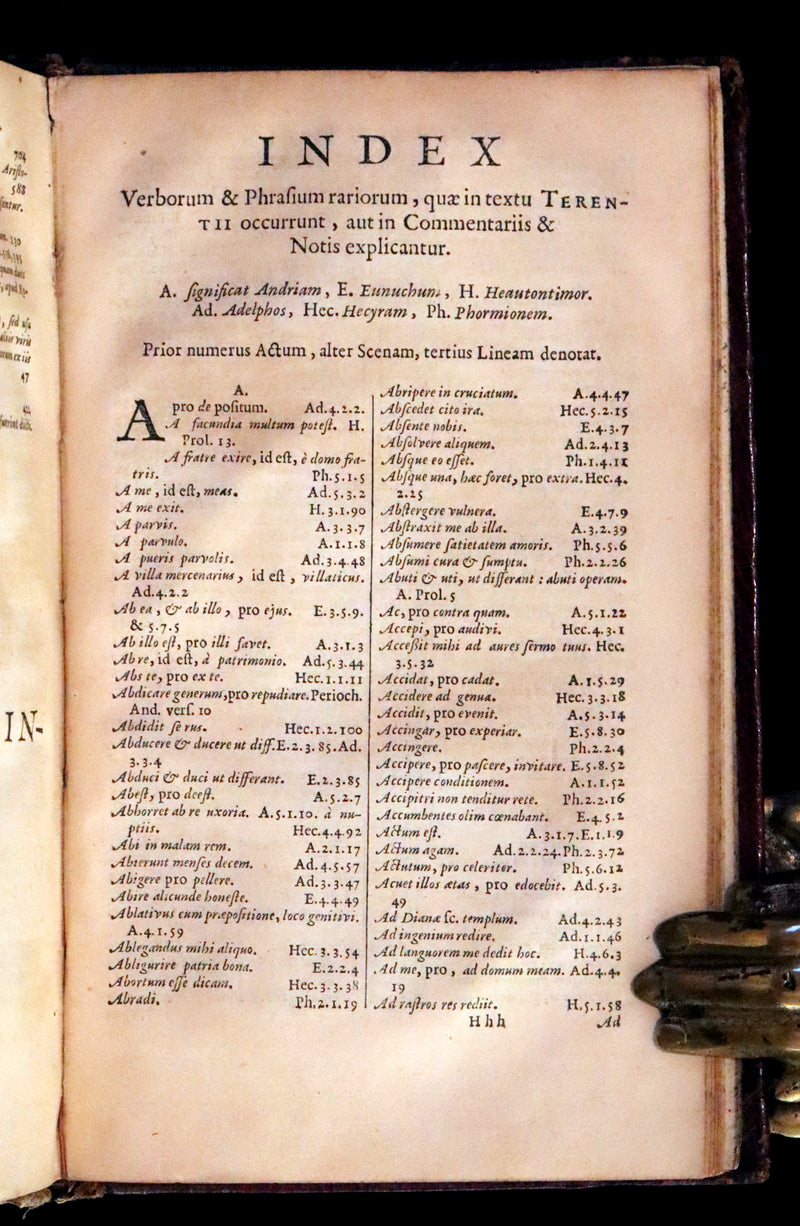 704
Ariſto-
588
ſentur.
47
IN-
INDEX
Verborum & Phraſium rariorum, quæ in textu TEREN-
TII occurrunt, aut in Commentariis &
Notis explicantur.
A. ſignificat Andriam, E. Eunuchum, H. Heautontimor.
Ad. Adelphos, Hec. Hecyram, Ph. Phormionem.
Prior numerus Actum, alter Scenam, tertius Lineam denotat.
A.
A pro de poſitum. Ad.4.2.2.
A facundia multum poteſt. H.
Prol. 13.
A fratre exire, id eſt, è domo fra-
tris. Ph.5.1.5
A me, id eſt, meas. Ad.5.3.2
A me exit. H.3.1.90
A parvis. A.3.3.7
A parvulo. A.1.1.8
A pueris parvolis. Ad.3.4.48
A villa mercenarius, id eſt, villaticus.
Ad.4.2.2
Ab ea, & ab illo, pro ejus. E.3.5.9.
& 5.7.5
Ab illo eſt, pro illi favet. A.3.1.3
Ab re, id eſt, à patrimonio. Ad.5.3.44
Abs te, pro ex te. Hec.1.1.11
Abdicare generum, pro repudiare. Perioch.
And. verſ. 10
Abdidit ſe rus. Hec.1.2.100
Abducere & ducere ut diff. E.2.3.85. Ad.
3.3.4
Abduci & duci ut differant. E.2.3.85
Abeſt, pro deeſt. A.5.2.7
Abhorret ab re uxoria. A.5.1.10. à nu-
ptiis. Hec.4.4.92
Abi in malam rem. A.2.1.17
Abierunt menſes decem. Ad.4.5.57
Abigere pro pellere. Ad.3.3.47
Abire alicunde honeſte. E.4.4.49
Ablativus cum præpoſitione, loco genitivi.
A.4.1.59
Ablegandus mihi aliquo. Hec.3.3.54
Abligurire patria bona. E.2.2.4
Abortum eſſe dicam. Hec.3.3.38
Abradi. Ph.2.1.19
Abripere in cruciatum. A.4.4.47
Abſcedet cito ira. Hec.5.2.15
Abſente nobis. E.4.3.7
Abſolvere aliquem. Ad.2.4.13
Abſque eo eſſet. Ph.1.4.11
Abſque una, hæc foret, pro extra. Hec.4.
2.25
Abſtergere vulnera. E.4.7.9
Abſtraxit me ab illa. A.3.2.39
Abſumere ſatietatem amoris. Ph.5.5.6
Abſumi cura & ſumptu. Ph.2.2.26
Abuti & uti, ut differant: abuti operam.
A. Prol. 5
Ac, pro contra quam. A.5.1.22
Accepi, pro audivi. Hec.4.3.1
Acceſſit mihi ad aures ſermo tuus. Hec.
3.5.32
Accidat, pro cadat. A.1.5.29
Accidere ad genua. Hec.3.3.18
Accidit, pro evenit. A.5.3.14
Accingar, pro experiar. E.5.8.30
Accingere. Ph.2.2.4
Accipere, pro paſcere, invitare. E.5.8.52
Accipere conditionem. A.1.1.52
Accipitri non tenditur rete. Ph.2.2.16
Accumbentes olim cœnabant. E.4.5.2
Actum eſt. A.3.1.7.E.1.1.9
Actum agam. Ad.2.2.24.Ph.2.3.72
Actutum, pro celeriter. Ph.5.6.12
Acuet illos ætas, pro edocebit. Ad.5.3.
49
Ad Dianæ ſc. templum. Ad.4.2.43
Ad ingenium redire. Ad.1.1.46
Ad languorem me dedit hoc. H.4.6.3
Ad me, pro, ad domum meam. Ad.4.4.
19
Ad raſtros res rediit. H.5.1.58
Hhh Ad